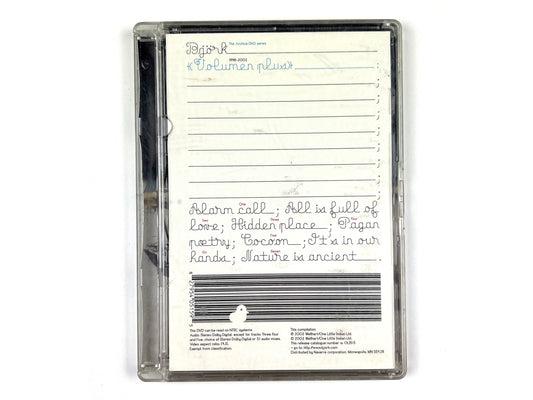 Björk The Archive DVD series
«Volumen plus» 1998-2002
One
Alarm call ; All is full of
Two Three Four
love; Hidden place ; Pagan
Five
poetry; Cocoon ; It's in our
Six Seven
hands; Nature is ancient .
This DVD can be read on NTSC systems
Audio: Stereo Dolby Digital except for tracks Three, Four
and Five choice of Stereo Dolby Digital or 5.1 audio mixes.
Video aspect ratio:
Exempt from classification.
This compilation:
℗ 2002 Wellhart/One Little Indian Ltd.
© 2002 Wellhart/One Little Indian Ltd.
This release catalogue number is
> go to: http://www.bjork.com
Distributed by Navarre corporation, Minneapolis, MN 55428